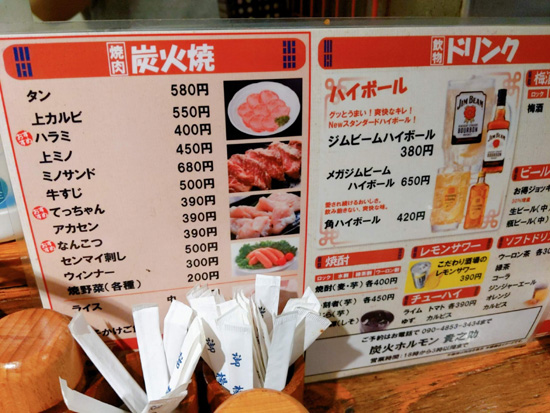 焼肉 炭火焼
タン 580円
上カルビ 550円
ハラミ 400円
上ミノ 450円
ミノサンド 680円
牛すじ 500円
てっちゃん 390円
アカセン 390円
なんこつ 390円
センマイ刺し 500円
ウィンナー 300円
焼野菜(各種) 200円
ライス
飲物 ドリンク
ハイボール
グッとうまい!爽快なキレ!
Newスタンダードハイボール!
ジムビームハイボール
380円
メガジムビーム
ハイボール 650円
愛され続けるおいしさ、
飲み飽きない、爽快な味。
角ハイボール 420円
JIM BEAM
BOURBON
焼酎
ロック 水割
焼酎(麦・芋)各400円
各450円
レモンサワー
こだわり酒場の
レモンサワー
390円
チューハイ
ライム トマト 各390円
ゆず カルピス
梅酒
ロック
梅酒
ビール
お得ジョッキ
生ビール(中)
瓶ビール(中)
ソフトドリ
ウーロン茶
緑茶
コーラ
ジンジャーエール
オレンジ
カルピス
ご予約はお電話で 090-4853-3434まで
炭火ホルモン 貴之助